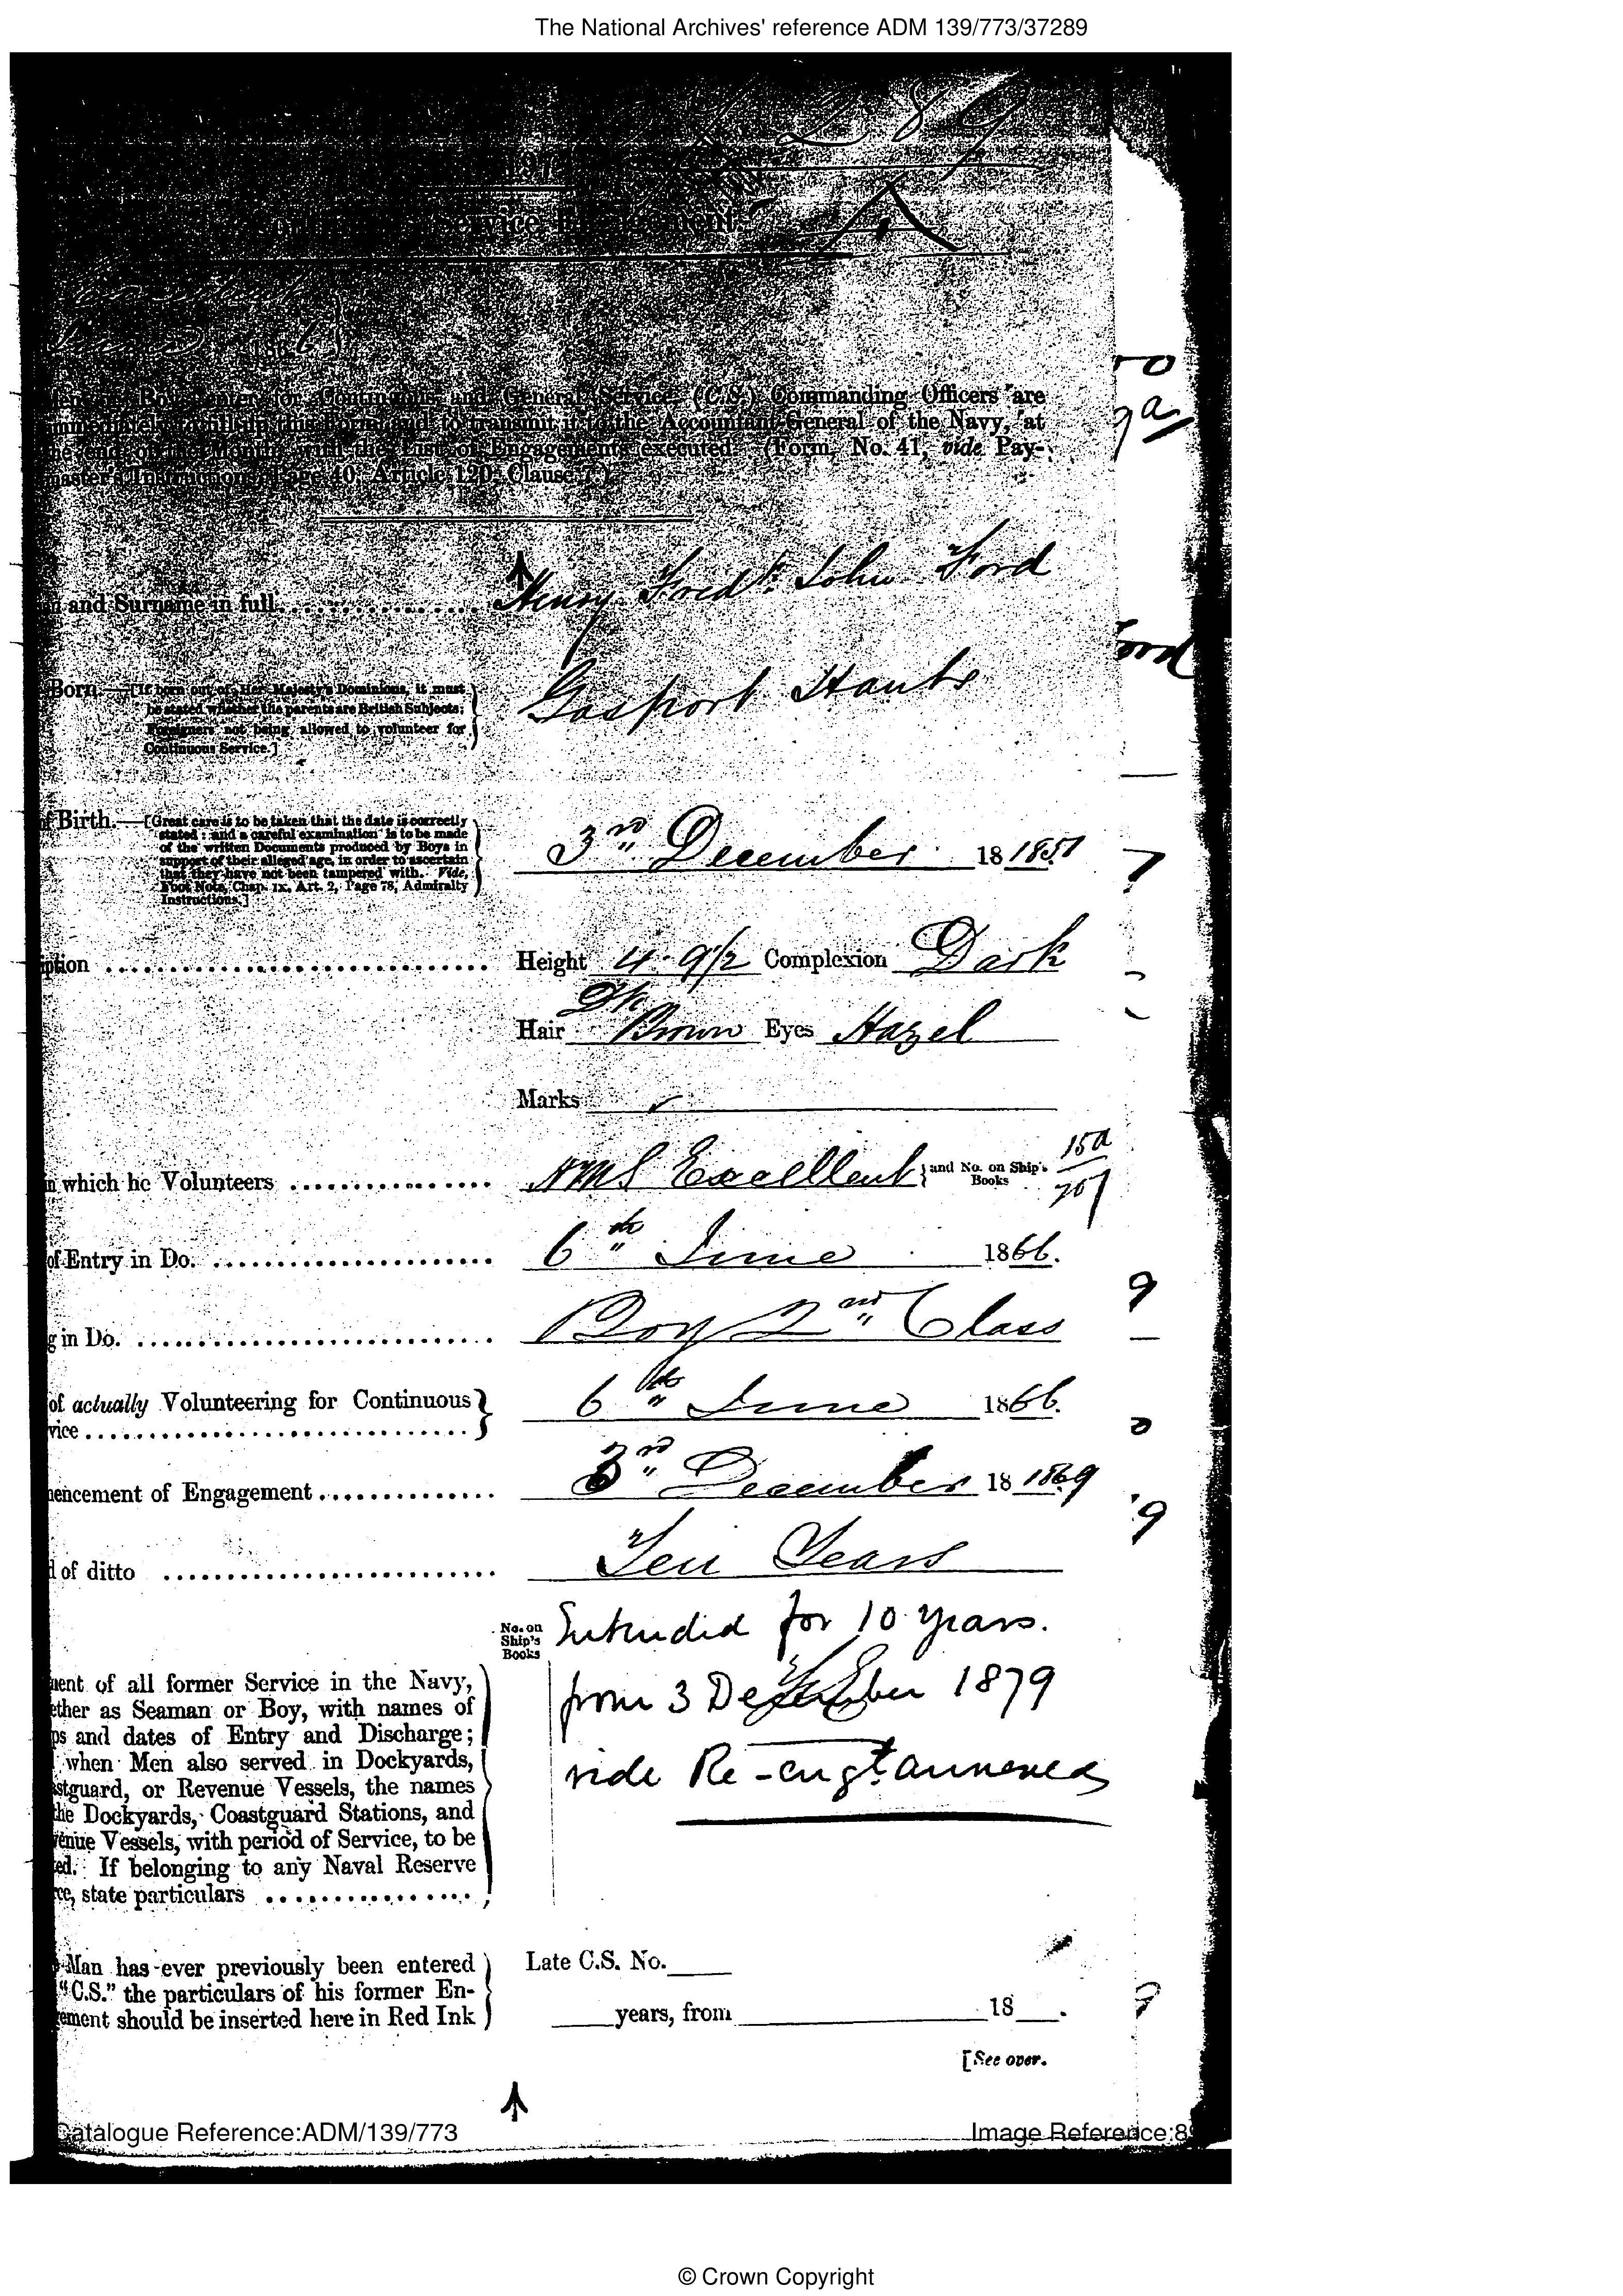 The National Archives' reference ADM 139/773/37289
289
Men and Boys enter for Continuous and General Service (C.S.) Commanding Officers are
immediately to fill up this Form and to transmit it to the Accountant-General of the Navy, at
the end of the Month, with the List of Engagements executed. (Form, No. 41, vide Pay-
master's Instructions, Page 40, Article 120, Clause 7.)
n and Surname in full Henry Fredk. John Ford
Born.—[If born out of Her Majesty's Dominions, it must
be stated whether the parents are British Subjects;
Foreigners not being allowed to volunteer for
Continuous Service.]
Gosport Hants
of Birth.—[Great care is to be taken that the date is correctly
stated: and a careful examination is to be made
of the written Documents produced by Boys in
support of their alleged age, in order to ascertain
that they have not been tampered with. Vide,
Foot Note, Chap. IX. Art. 2, Page 78, Admiralty
Instructions.]
3rd December 18 1851
iption Height 4. 9 1/2 Complexion Dark
Hair Dk Brown Eyes Hazel
Marks
n which he Volunteers HMS Excellent and No. on Ship's Books 15a
of Entry in Do. 6th June 1866.
g in Do. Boy 2nd Class
of actually Volunteering for Continuous
vice 6th June 1866.
mencement of Engagement 3rd December 18 1869
d of ditto Ten Years
No. on Ship's Books
Intended for 10 years.
from 3 December 1879
vide Re-engt. annexed
ment of all former Service in the Navy,
ether as Seaman or Boy, with names of
ps and dates of Entry and Discharge;
when Men also served in Dockyards,
astguard, or Revenue Vessels, the names
the Dockyards, Coastguard Stations, and
venue Vessels, with period of Service, to be
ed. If belonging to any Naval Reserve
ce, state particulars
Man has ever previously been entered
"C.S." the particulars of his former En-
gement should be inserted here in Red Ink
Late C.S. No.
years, from 18 .
[See over.
Catalogue Reference:ADM/139/773
Image Reference:8
© Crown Copyright